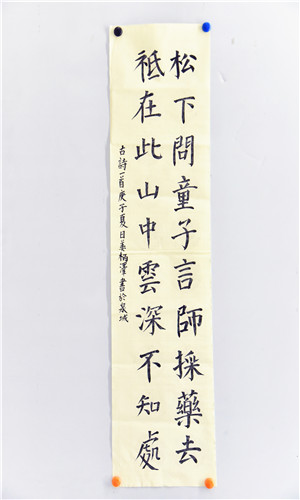 松下問童子言師採藥去
祗在此山中雲深不知處
古詩一首庚子夏日姜楊澤書於泉城